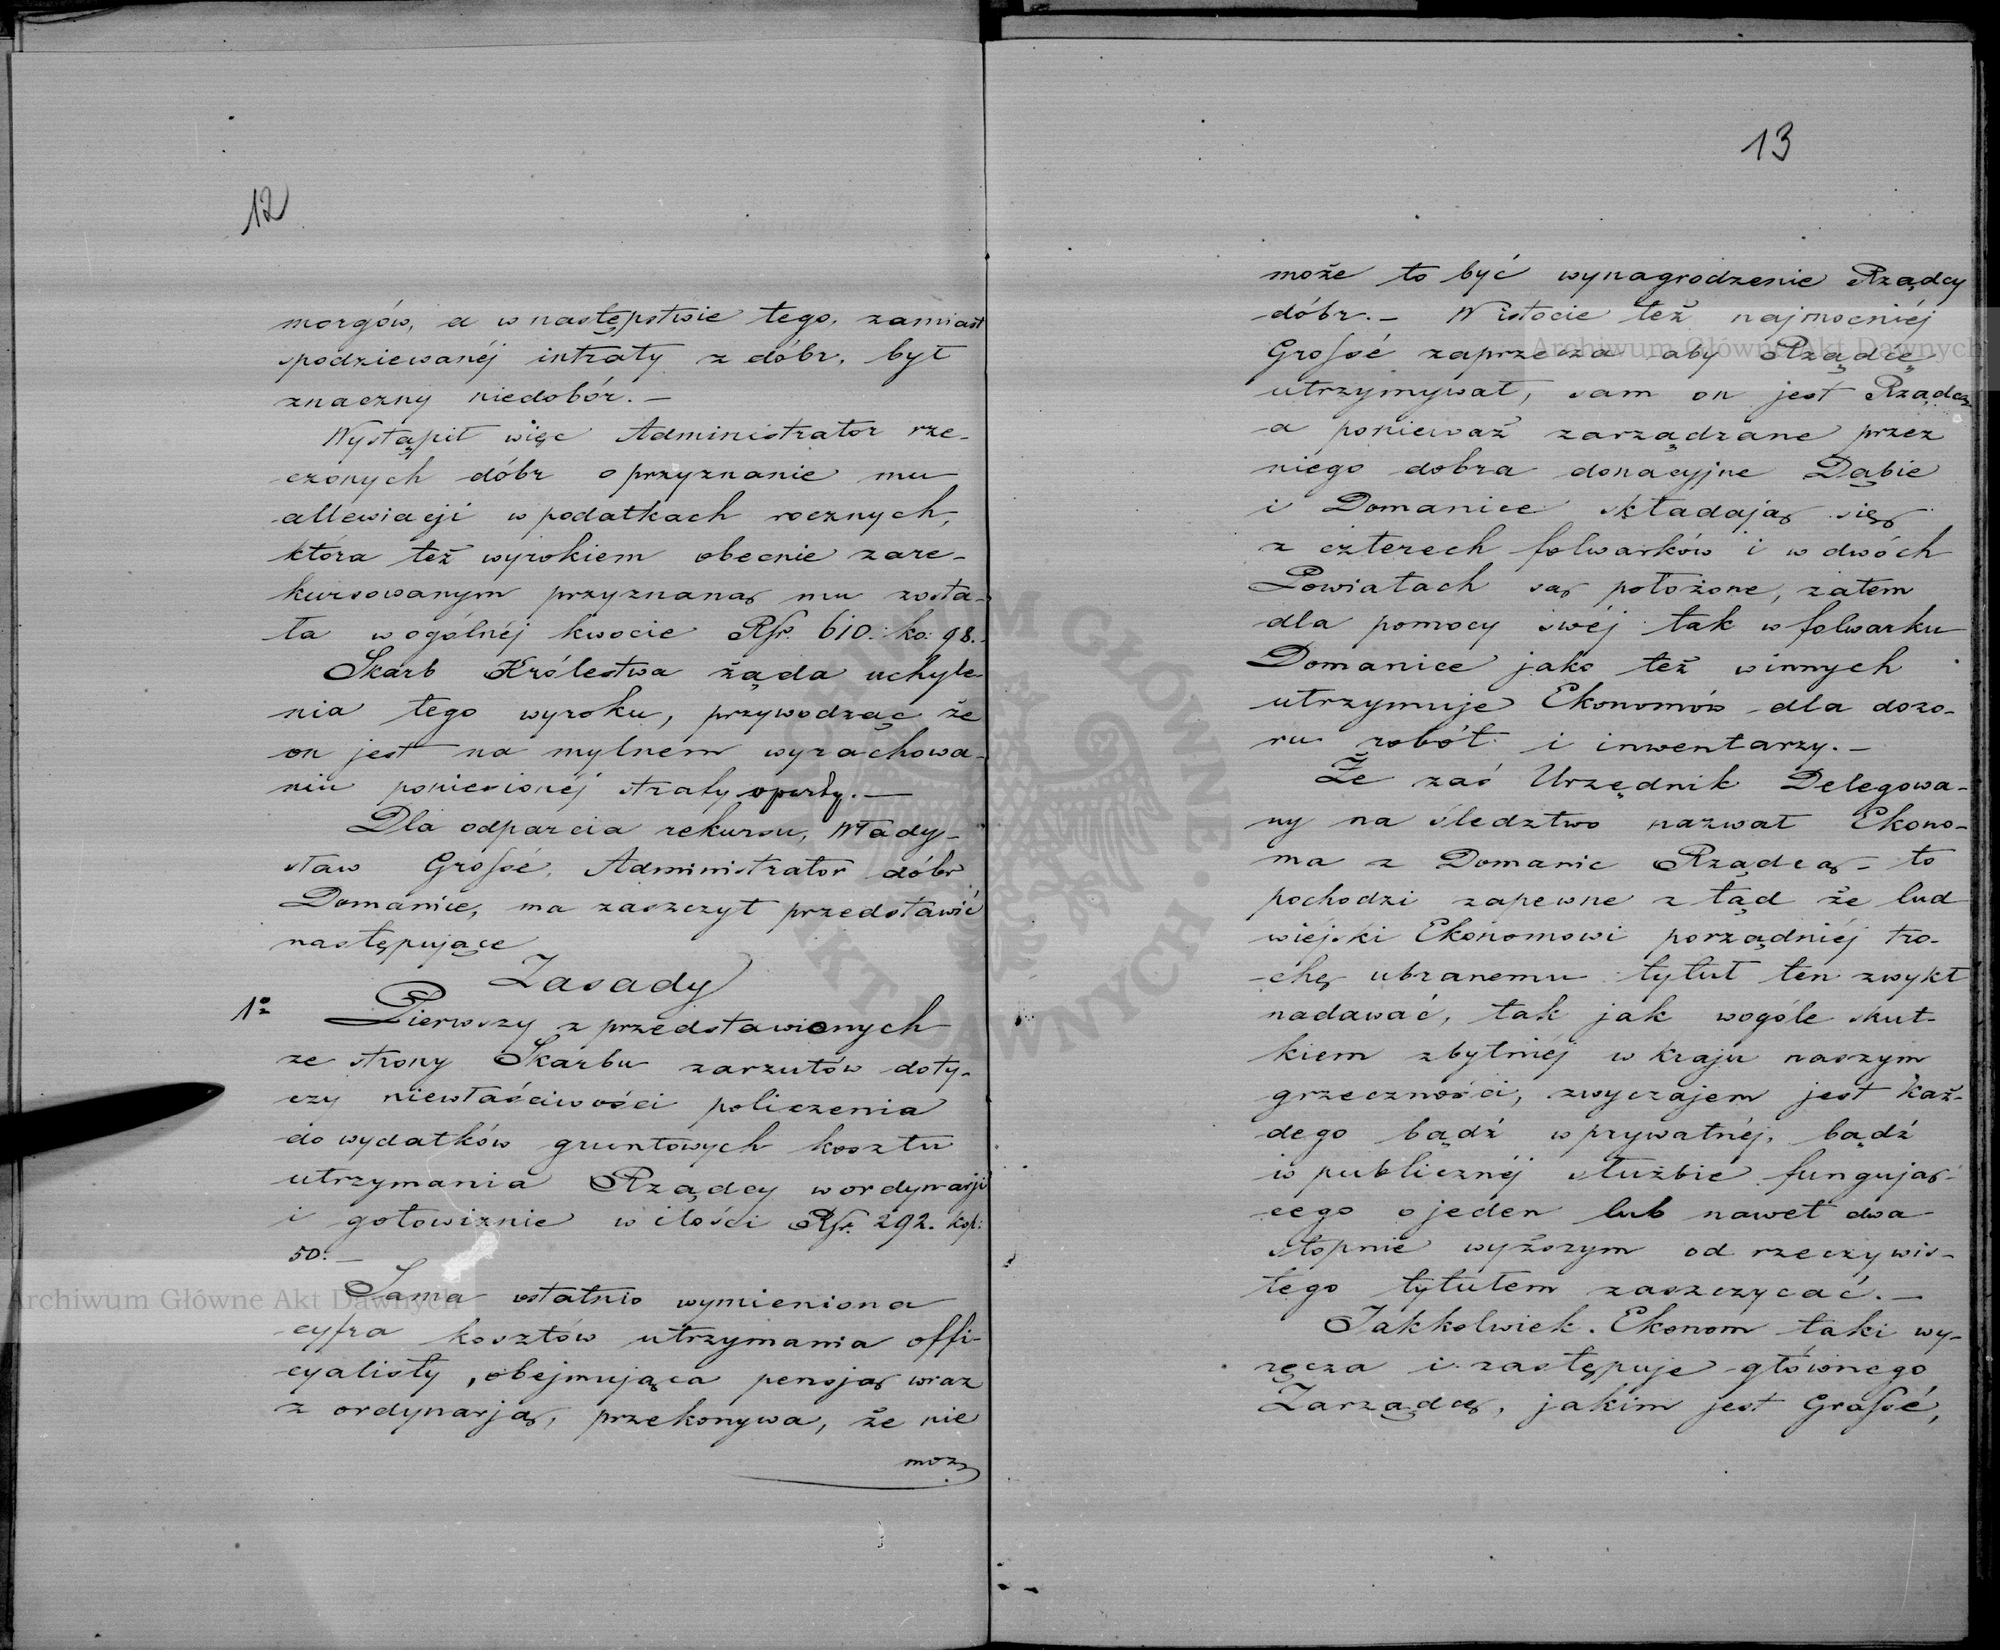 12
morgów, a w następstwie tego, zamiast
spodziewanéj intraty z dóbr, był
znaczny niedobór. —
Wystąpił więc Administrator rze-
czonych dóbr o przyznanie mu
allewiacji w podatkach rocznych,
która też wyrokiem obecnie zare-
kursowanym przyznaną mu zosta-
ła w ogólnéj kwocie Rsr. 610. ko: 98. -
Skarb Królestwa żąda uchyle-
nia tego wyroku, przywodząc że
on jest na mylnem wyrachowa-
niu poniesionéj straty oparty. —
Dla odparcia rekursu, Włady-
sław Grossé, Administrator dóbr
Domanice, ma zaszczyt przedstawić
następujące
Zasady
1º Pierwszy z przedstawionych
ze strony Skarbu zarzutów doty-
czy niewłaściwości policzenia
do wydatków gruntowych kosztu
utrzymania Rządcy w ordynarji
i gotowiznie w ilości Rsr. 292. kop:
50. —
Sama ostatnio wymieniona
cyfra kosztów utrzymania offi-
cyalisty, obejmująca pensją wraz
z ordynarją, przekonywa, że nie
może
13
może to być wynagrodzenie Rządcy
dóbr. — W istocie też najmocniéj
Grossé zaprzecza aby Rządcę
utrzymywał, sam on jest Rządcą
a ponieważ zarządzane przez
niego dobra donacyjne Dąbie
i Domanice składają się
z czterech folwarków i w dwóch
Powiatach są położone, zatem
dla pomocy swéj tak w folwarku
Domanice jako też w innych
utrzymuje Ekonomów dla dozo-
ru robót i inwentarzy. —
Że zaś Urzędnik Delegowa-
ny na śledztwo nazwał Ekono-
ma z Domanic Rządcą — to
pochodzi zapewne z tąd że lud
wiejski Ekonomowi porządniéj tro-
chę ubranemu tytuł ten zwykł
nadawać, tak jak wogóle skut-
kiem zbytniéj w kraju naszym
grzeczności, zwyczajem jest każ-
dego bądź w prywatnéj, bądź
w publicznéj służbie fungują-
cego o jeden lub nawet dwa
stopnie wyższym od rzeczywis-
tego tytułem zaszczycać. —
Jakkolwiek Ekonom taki wy-
ręcza i zastępuje głównego
Zarządcę, jakim jest Grossé,
Archiwum Główne Akt Dawnych
Archiwum Główne Akt Dawnych
ARCHIWUM GŁÓWNE AKT DAWNYCH